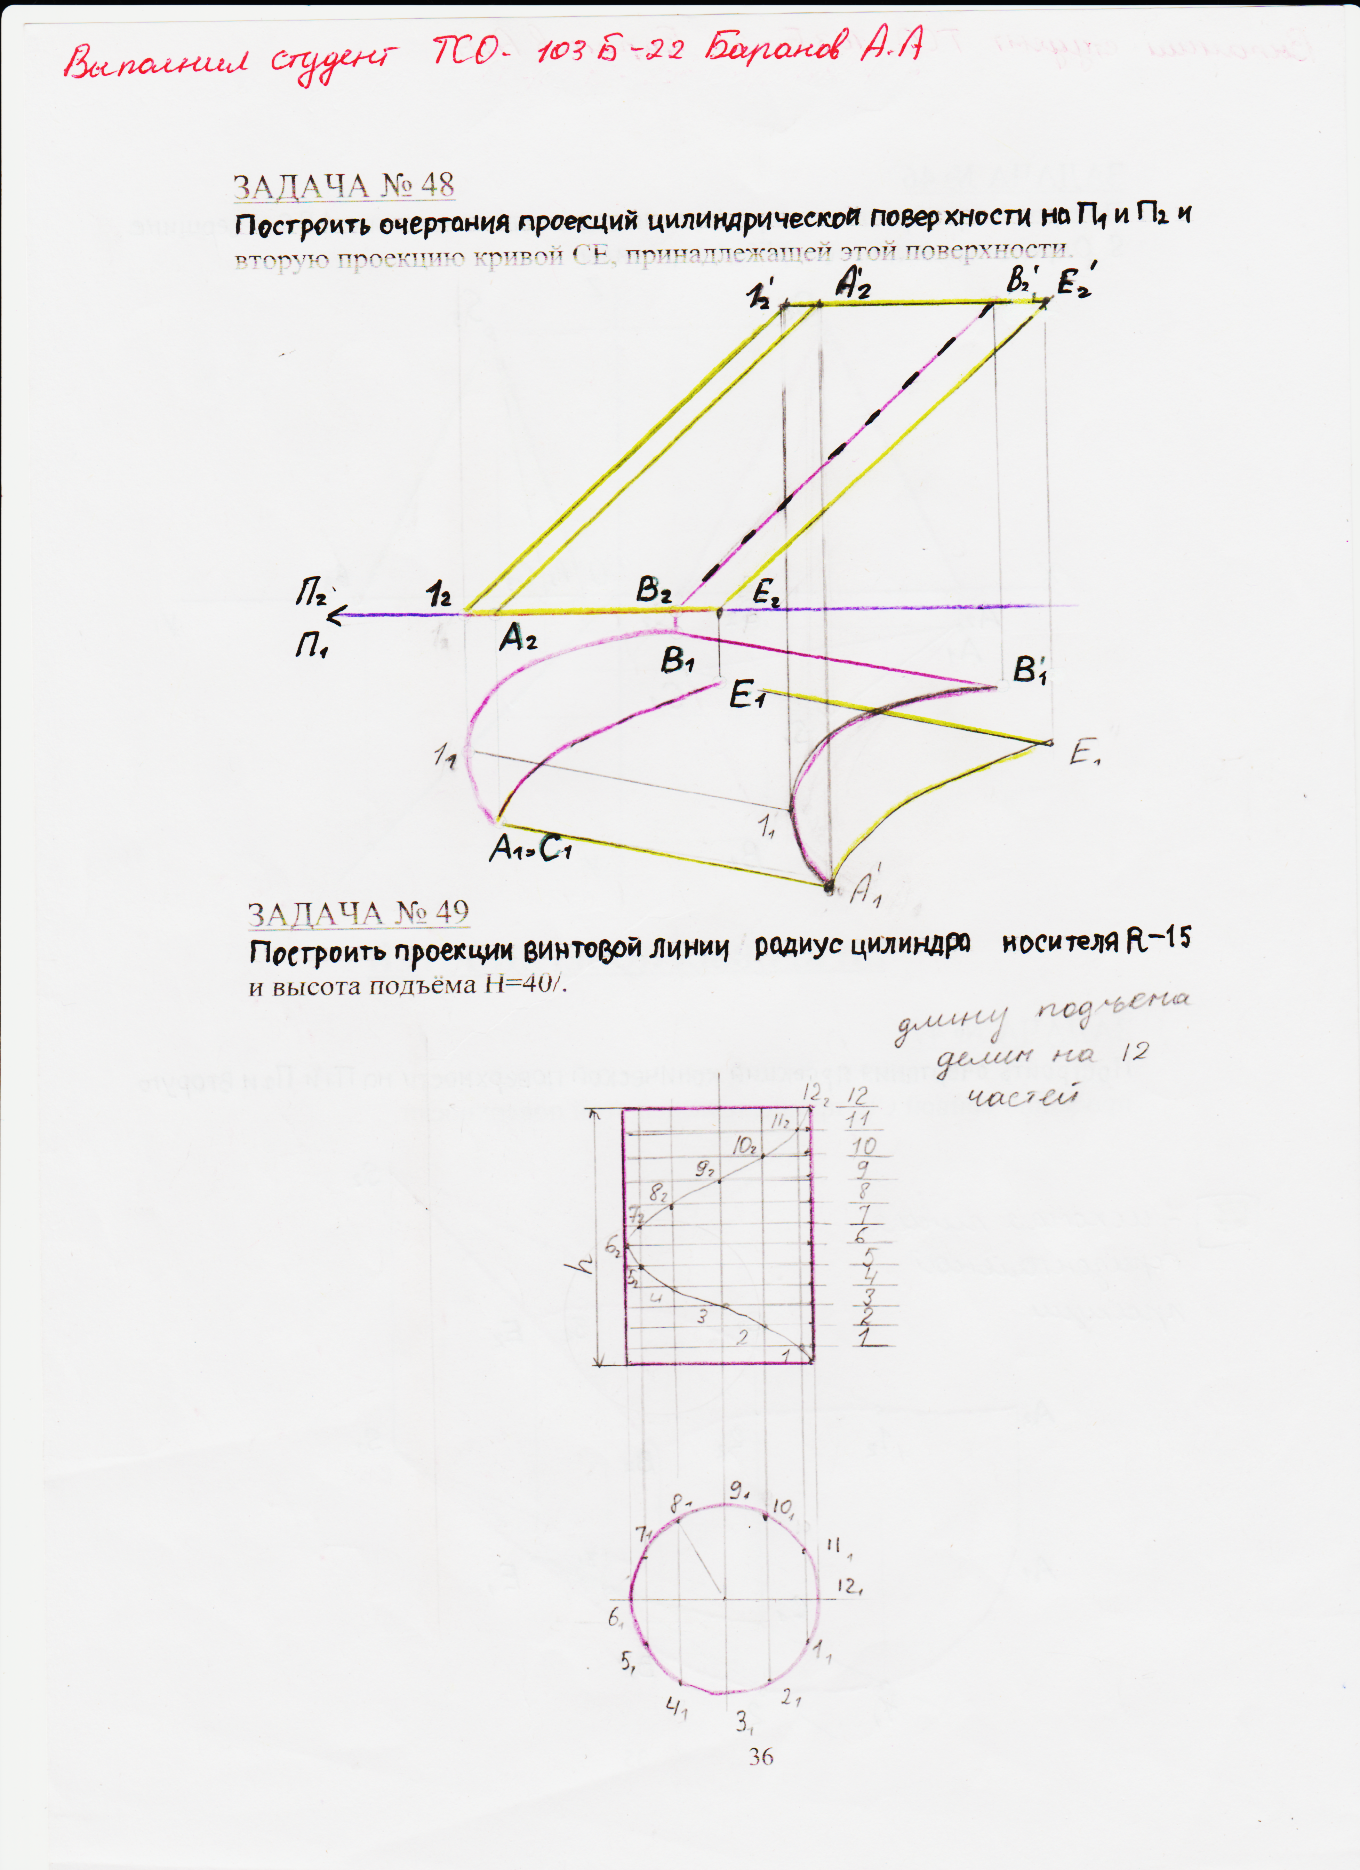 Выполнил студент ТСО- 103Б-22 Баранов А.А
ЗАДАЧА № 48
Построить очертания проекций цилиндрической поверхности на П₁ и П₂ и
вторую проекцию кривой СЕ, принадлежащей этой поверхности.
1₂' A₂' B₂' E₂'
П₂ 1₂ B₂ E₂
П₁ A₂ B₁ B₁'
E₁
1₁ E₁
1₁
A₁=C₁ A₁'
ЗАДАЧА № 49
Построить проекции винтовой линии радиус цилиндра носителя R-15
и высота подъёма Н=40/.
длину подъема
делим на 12
частей
12₂ 12
11₂ 11
10₂ 10
9₂ 9
8₂ 8
7₂ 7
6₂ 6
h 5₂ 5
4 4
3 3
2 2
1 1
9₁
8₁ 10₁
7₁ 11₁
12₁
6₁
5₁ 1₁
4₁ 2₁
3₁
36